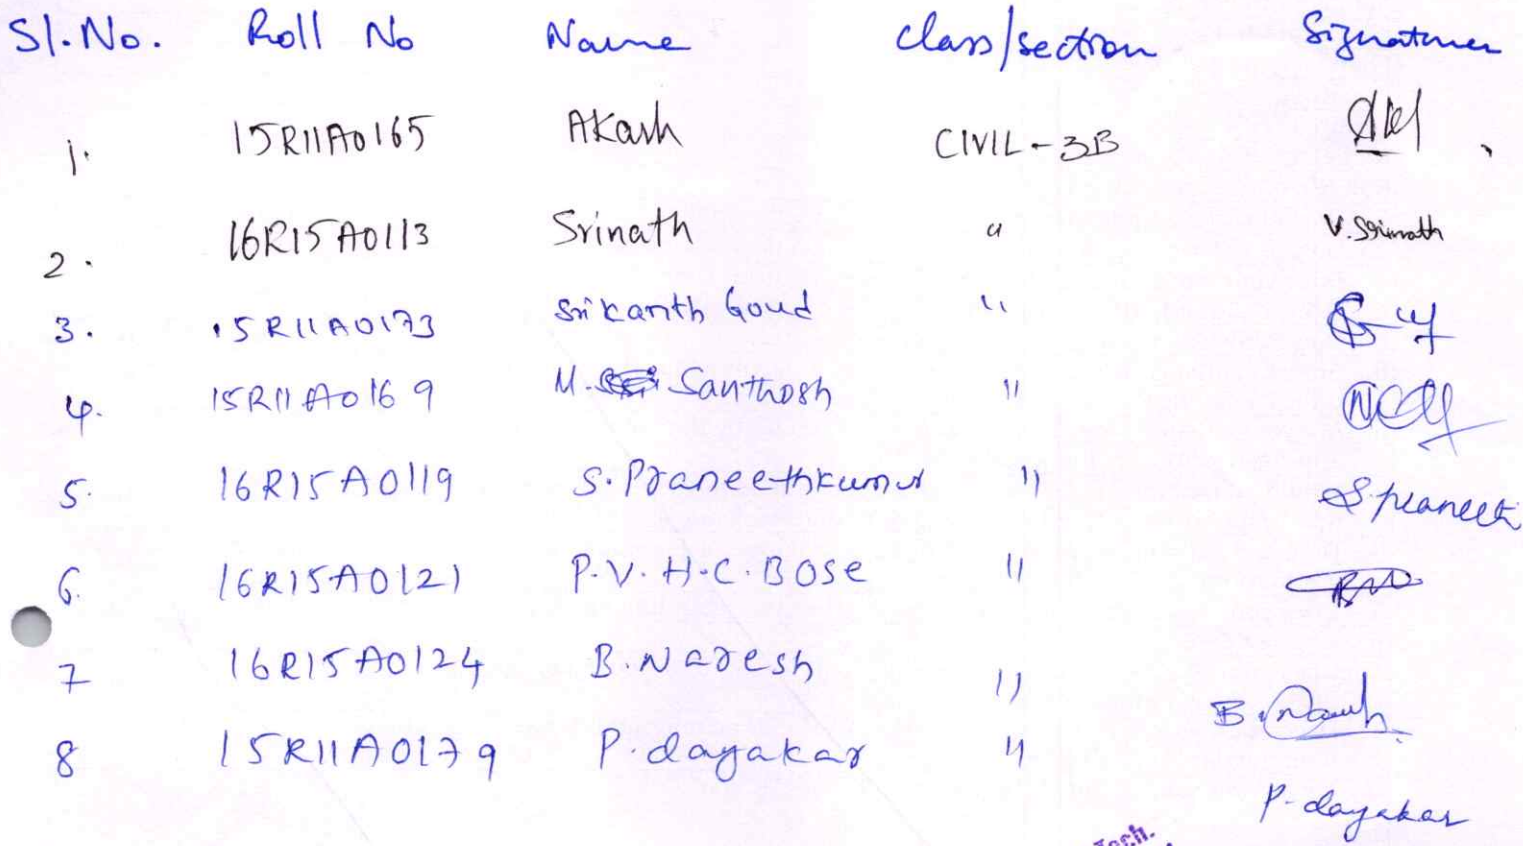 Sl.No. Roll No Name Class/section Signature
1. 15R11A0165 Akash CIVIL-3B
2. 16R15A0113 Srinath " V.Srinath
3. 15R11A0173 Srikanth Goud "
4. 15R11A0169 M. Santhosh "
5. 16R15A0119 S.Praneethkumar " S.praneeth
6. 16R15A0121 P.V.H.C.BOSe "
7 16R15A0124 B.Naresh " B.
8 15R11A0179 P.dayakar " P.dayakar
Tech.